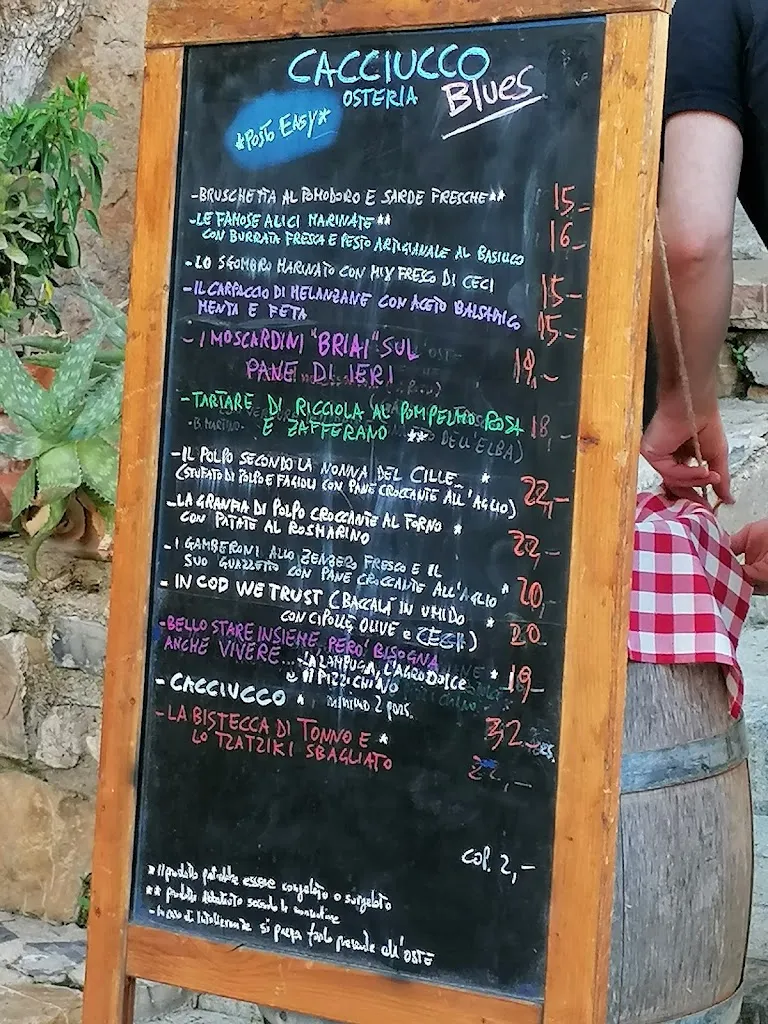 CACCIUCCO
OSTERIA Blues
*POSTO EASY*
-BRUSCHETTA AL POMODORO E SARDE FRESCHE** 15-
-LE FAMOSE ALICI MARINATE**
CON BURRATA FRESCA E PESTO ARTIGIANALE AL BASILICO 16-
-LO SGOMBRO MARINATO CON MIX FRESCO DI CECI 15-
-IL CARPACCIO DI MELANZANE CON ACETO BALSAMICO
MENTA E FETA 15-
-I MOSCARDINI "BRIAI" SUL
PANE DI IERI 19,-
-TARTARE DI RICCIOLA AL POMPELMO ROSA
E ZAFFERANO ** 18,-
DELL'ELBA)
-IL POLPO SECONDO LA NONNA DEL CILLE... *
(STUFATO DI POLPO E FAGIOLI CON PANE CROCCANTE ALL'AGLIO) 22,-
-LA GRANFIA DI POLPO CROCCANTE AL FORNO *
CON PATATE AL ROSMARINO 22,-
-I GAMBERONI ALLO ZENZERO FRESCO E IL
SUO GUAZZETTO CON PANE CROCCANTE ALL'AGLIO * 20,-
- IN COD WE TRUST (BACCALÀ IN UMIDO *
CON CIPOLLE OLIVE e CECI) 20-
-BELLO STARE INSIEME, PERO' BISOGNA
ANCHE VIVERE...-LA LAMPUGA, L'AGRODOLCE * 19-
e il PIZZICHINO
- CACCIUCCO * MINIMO 2 pers. 32-
-LA BISTECCA DI TONNO E *
LO TZATZIKI SBAGLIATO 22,-
COP. 2,-
* Il prodotto potrebbe essere congelato o surgelato
** prodotto abbattuto secondo la normativa
- In caso di intolleranze si prega farlo presente all'OSTE